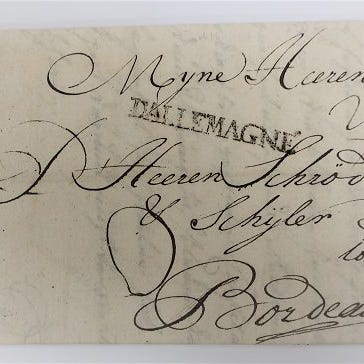 Myne Heeren
DALLEMAGNE
D'Heeren Schröd
& Schÿler
Bordea